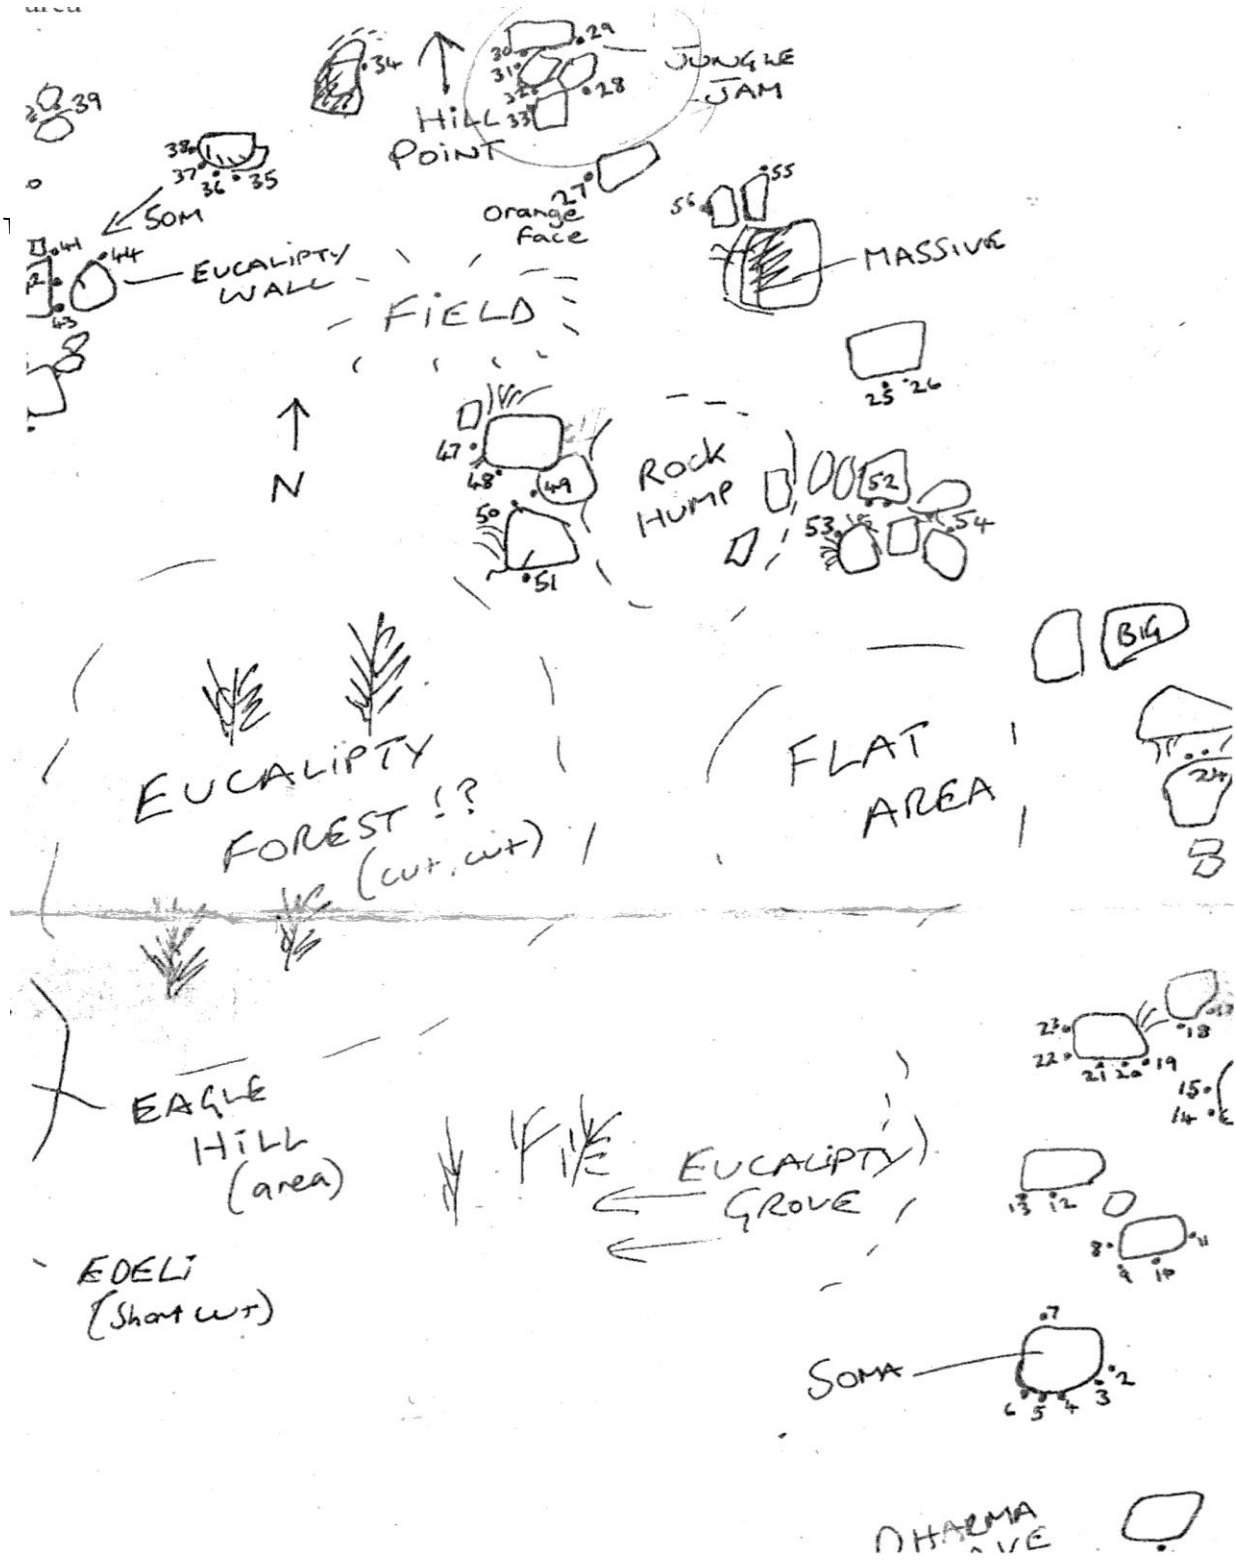 area
29
30
31
32
33
28
34
JUNGLE
JAM
HiLL
POiNT
39
38
37
36
35
50M
27
Orange
face
55
56
MASSIVE
41
44
43
EUCALiPTY
WALL
FiELD
25
26
N
47
48
49
50
51
ROCK
HUMP
52
53
54
BIG
EUCALiPTY
FOREST !?
(cut, cut)
FLAT
AREA
24
23
22
21
20
19
18
17
15
14
EAGLE
HiLL
(area)
EUCALiPTY
GROVE
13
12
8
9
10
11
EDELi
(Short cut)
7
SOMA
6
5
4
3
2
DHARMA